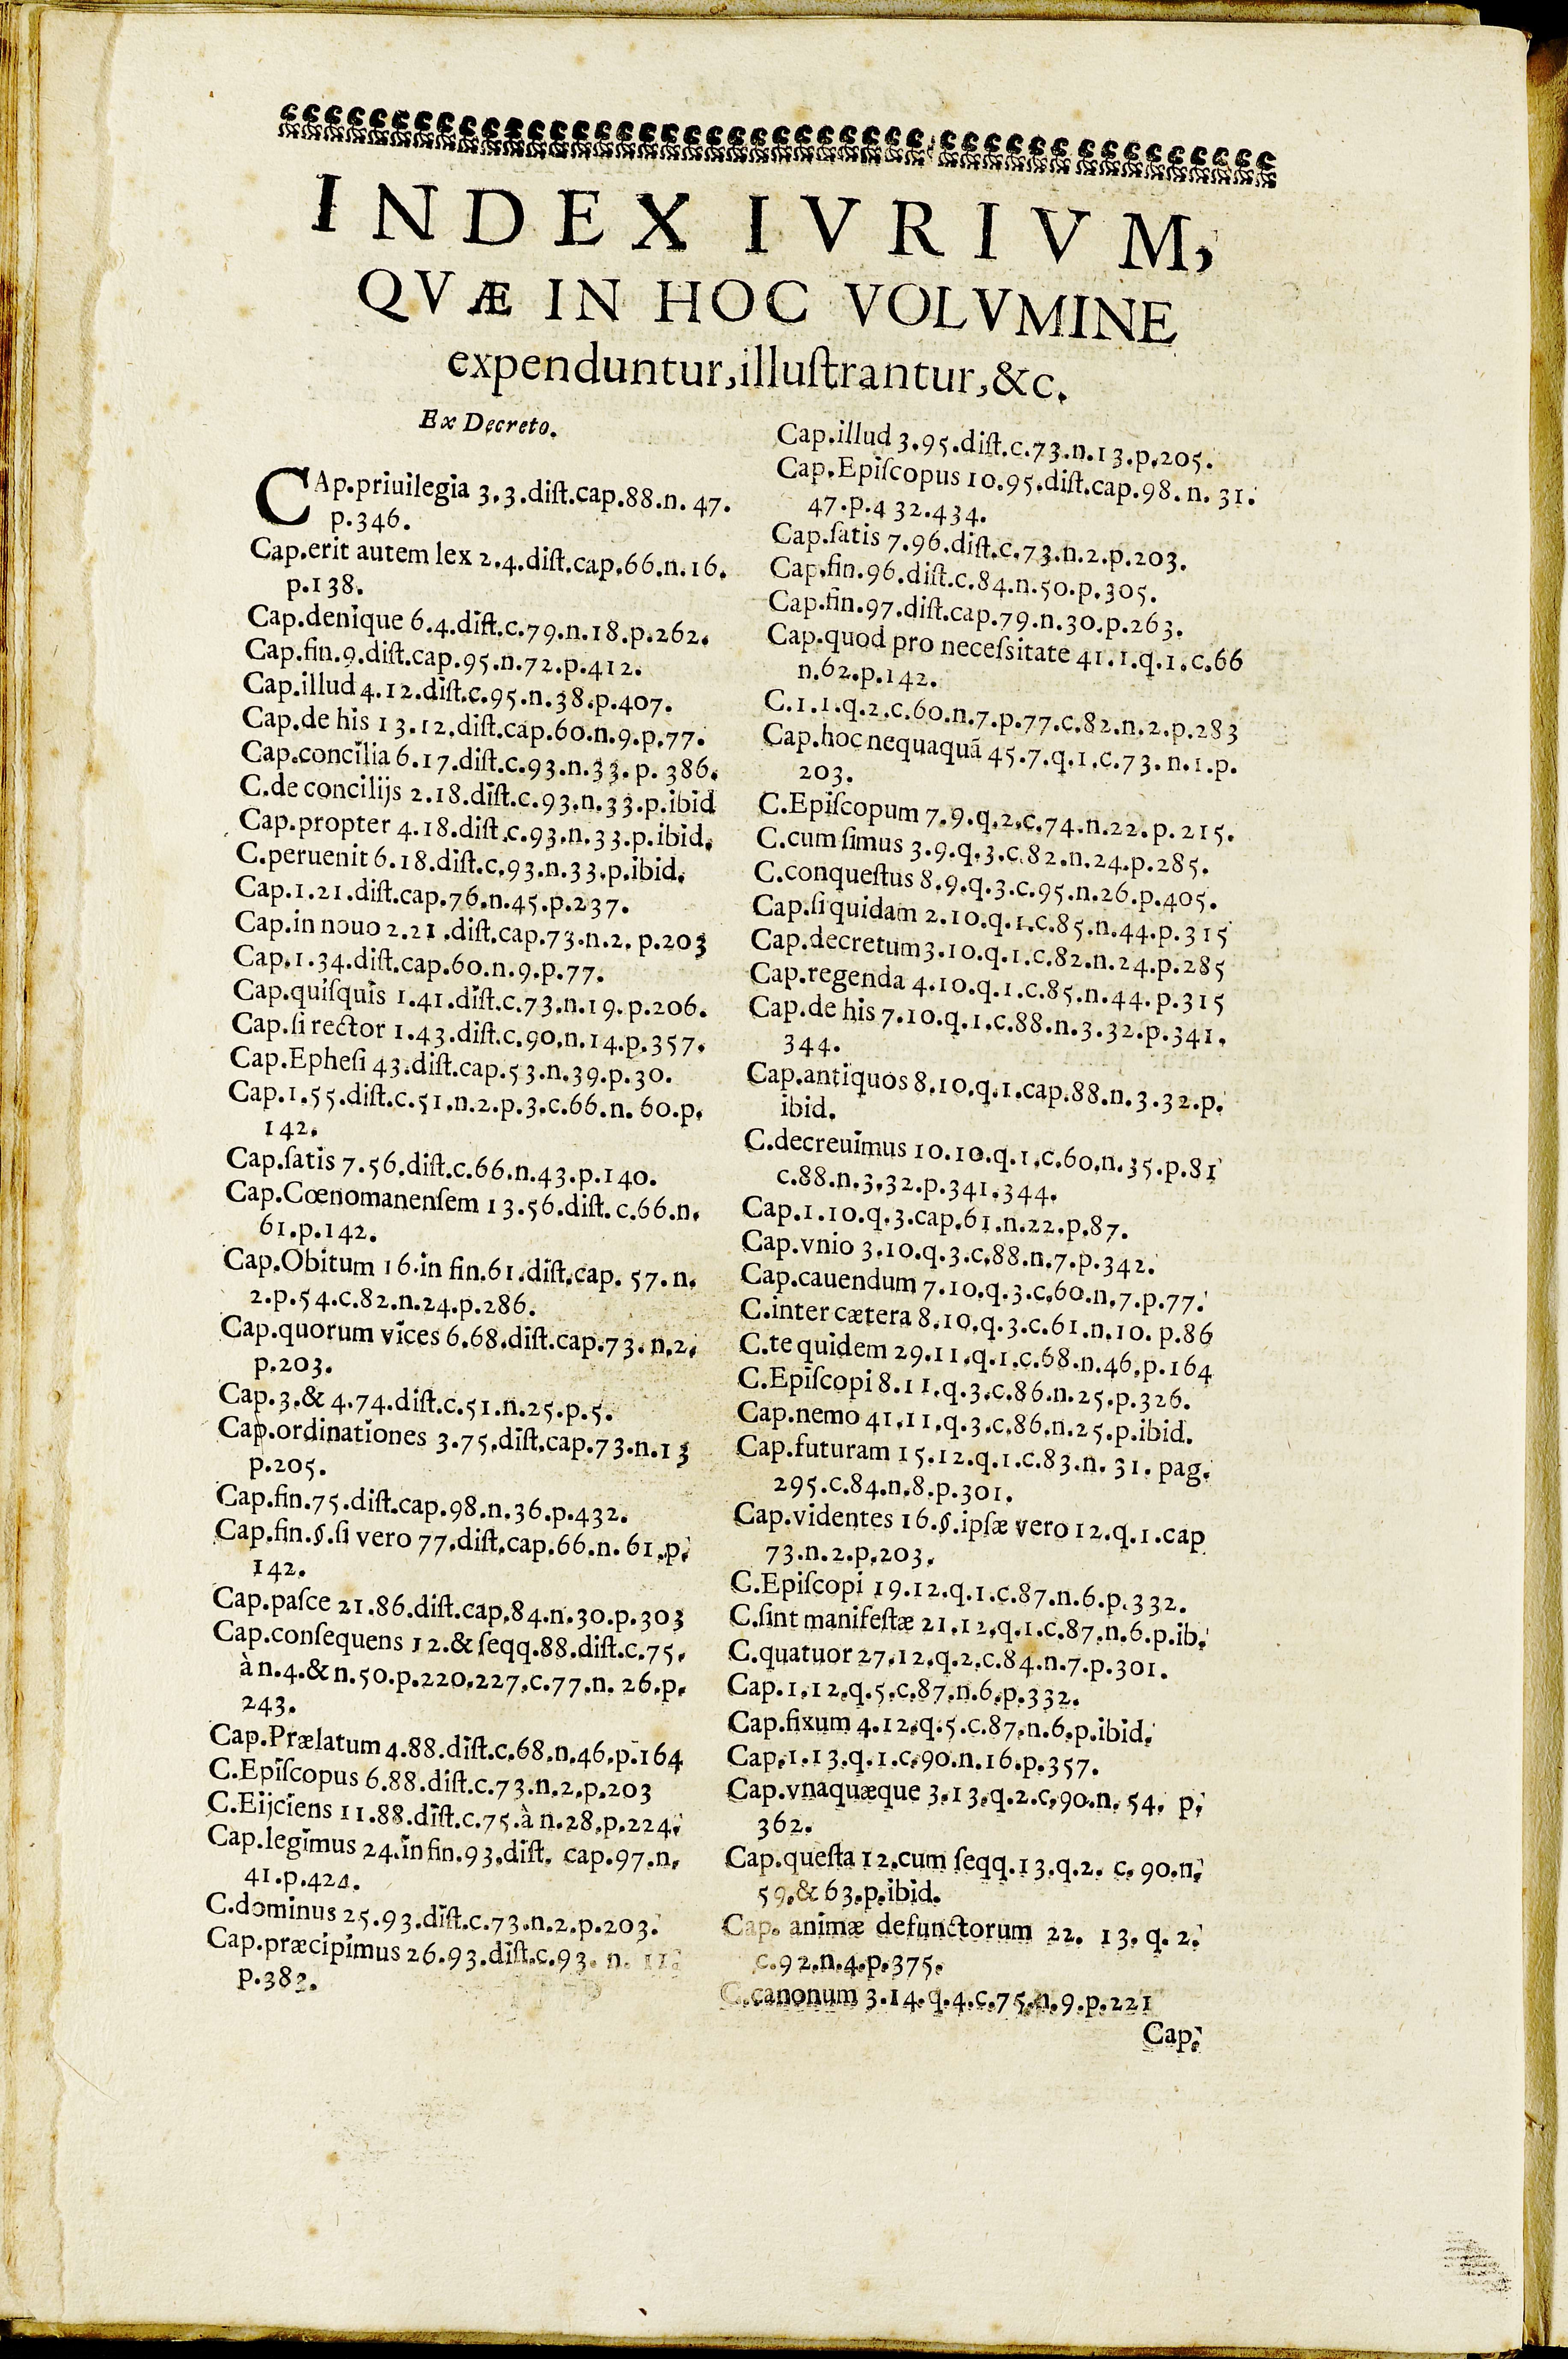 INDEX IVRIVM,
QVÆ IN HOC VOLVMINE
expenduntur,illuſtrantur,&c.
Ex Decreto.
CAp.priuilegia 3.3.diſt.cap.88.n.47.
p.346.
Cap.erit autem lex 2.4.diſt.cap.66.n.16.
p.138.
Cap.denique 6.4.diſt.c.79.n.18.p.262.
Cap.fin.9.diſt.cap.95.n.72.p.412.
Cap.illud 4.12.diſt.c.95.n.38.p.407.
Cap.de his 13.12.diſt.cap.60.n.9.p.77.
Cap.concilia 6.17.diſt.c.93.n.33.p.386.
C.de concilijs 2.18.diſt.c.93.n.33.p.ibid
Cap.propter 4.18.diſt.c.93.n.33.p.ibid.
C.peruenit 6.18.diſt.c.93.n.33.p.ibid.
Cap.1.21.diſt.cap.76.n.45.p.237.
Cap.in nouo 2.21.diſt.cap.73.n.2.p.203
Cap.1.34.diſt.cap.60.n.9.p.77.
Cap.quiſquis 1.41.diſt.c.73.n.19.p.206.
Cap.ſi rector 1.43.diſt.c.90.n.14.p.357.
Cap.Epheſi 43.diſt.cap.53.n.39.p.30.
Cap.1.55.diſt.c.51.n.2.p.3.c.66.n.60.p.
142.
Cap.ſatis 7.56.diſt.c.66.n.43.p.140.
Cap.Cœnomanenſem 13.56.diſt.c.66.n.
61.p.142.
Cap.Obitum 16.in fin.61.diſt.cap.57.n.
2.p.54.c.82.n.24.p.286.
Cap.quorum vices 6.68.diſt.cap.73.n.2.
p.203.
Cap.3.& 4.74.diſt.c.51.n.25.p.5.
Cap.ordinationes 3.75.diſt.cap.73.n.13
p.205.
Cap.fin.75.diſt.cap.98.n.36.p.432.
Cap.fin.§.ſi vero 77.diſt.cap.66.n.61.p.
142.
Cap.paſce 21.86.diſt.cap.84.n.30.p.303
Cap.conſequens 12.& ſeqq.88.diſt.c.75.
à n.4.& n.50.p.220.227.c.77.n.26.p.
243.
Cap.Prælatum 4.88.diſt.c.68.n.46.p.164
C.Epiſcopus 6.88.diſt.c.73.n.2.p.203
C.Eijciens 11.88.diſt.c.75.à n.28.p.224.
Cap.legimus 24.in fin.93.diſt.cap.97.n.
41.p.424.
C.dominus 25.93.diſt.c.73.n.2.p.203.
Cap.præcipimus 26.93.diſt.c.93.n.11.
p.383.
Cap.illud 3.95.diſt.c.73.n.13.p.205.
Cap.Epiſcopus 10.95.diſt.cap.98.n.31.
47.p.432.434.
Cap.ſatis 7.96.diſt.c.73.n.2.p.203.
Cap.fin.96.diſt.c.84.n.50.p.305.
Cap.fin.97.diſt.cap.79.n.30.p.263.
Cap.quod pro neceſsitate 41.1.q.1.c.66
n.62.p.142.
C.1.1.q.2.c.60.n.7.p.77.c.82.n.2.p.283
Cap.hoc nequaquã 45.7.q.1.c.73.n.1.p.
203.
C.Epiſcopum 7.9.q.2.c.74.n.22.p.215.
C.cum ſimus 3.9.q.3.c.82.n.24.p.285.
C.conqueſtus 8.9.q.3.c.95.n.26.p.405.
Cap.ſi quidam 2.10.q.1.c.85.n.44.p.315
Cap.decretum 3.10.q.1.c.82.n.24.p.285
Cap.regenda 4.10.q.1.c.85.n.44.p.315
Cap.de his 7.10.q.1.c.88.n.3.32.p.341.
344.
Cap.antiquos 8.10.q.1.cap.88.n.3.32.p.
ibid.
C.decreuimus 10.10.q.1.c.60.n.35.p.81
c.88.n.3.32.p.341.344.
Cap.1.10.q.3.cap.61.n.22.p.87.
Cap.vnio 3.10.q.3.c.88.n.7.p.342.
Cap.cauendum 7.10.q.3.c.60.n.7.p.77.
C.inter cætera 8.10.q.3.c.61.n.10.p.86
C.te quidem 29.11.q.1.c.68.n.46.p.164
C.Epiſcopi 8.11.q.3.c.86.n.25.p.326.
Cap.nemo 41.11.q.3.c.86.n.25.p.ibid.
Cap.futuram 15.12.q.1.c.83.n.31.pag.
295.c.84.n.8.p.301.
Cap.videntes 16.§.ipſæ vero 12.q.1.cap
73.n.2.p.203.
C.Epiſcopi 19.12.q.1.c.87.n.6.p.332.
C.ſint manifeſtæ 21.12.q.1.c.87.n.6.p.ib.
C.quatuor 27.12.q.2.c.84.n.7.p.301.
Cap.1.12.q.5.c.87.n.6.p.332.
Cap.fixum 4.12.q.5.c.87.n.6.p.ibid.
Cap.1.13.q.1.c.90.n.16.p.357.
Cap.vnaquæque 3.13.q.2.c.90.n.54. p.
362.
Cap.queſta 12.cum ſeqq.13.q.2. c.90.n.
59.& 63.p.ibid.
Cap. animæ defunctorum 22. 13. q. 2.
c.92.n.4.p.375.
C.canonum 3.14.q.4.c.75.n.9.p.221
Cap.